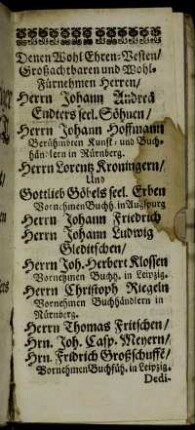 Denen Wohl Ehren-Vesten/
Großachtbaren und Wohl-
Fürnehmen Herren/
Herrn Johann Andreä
Endters seel. Söhnen/
Herrn Johann Hoffmann
Berühmbten Kunst- und Buch-
händlern in Nürnberg.
Herrn Lorentz Kroningern/
Und
Gottlieb Göbels seel. Erben
Vornehmen Buchh. in Augspurg
Herrn Johann Friedrich
Herrn Johann Ludwig
Gleditschen/
Herrn Joh. Herbert Klossen
Vornehmen Buchh. in Leipzig.
Herrn Christoph Riegeln
Vornehmen Buchhändlern in
Nürnberg.
Herrn Thomas Fritschen/
Hrn. Joh. Casp. Meyern/
Hrn. Fridrich Großschuff/
Vornehmen Buchfüh. in Leipzig.
Dedi-